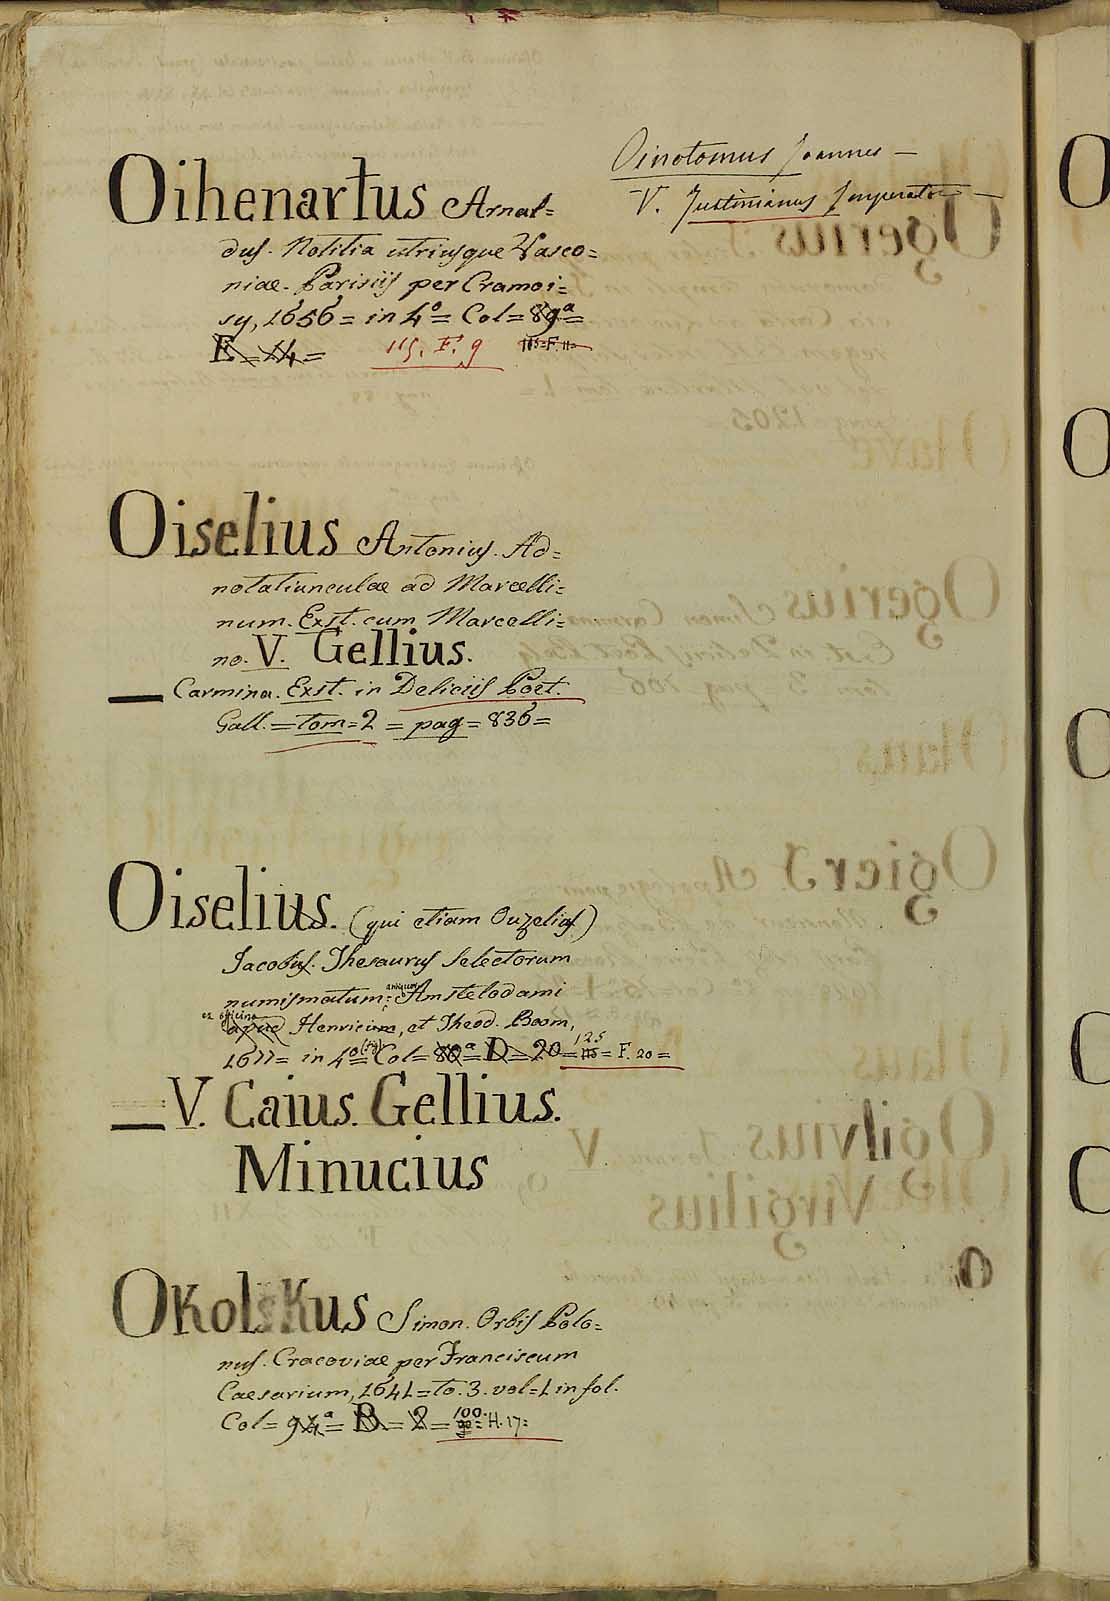 Oinotomus Joannes —
V. Justinianus Imperator —
Oihenartus Arnal=
dus. Notitia utriusque Vasco=
niae. Parisiis per Cramoi=
sy, 1656 = in 4º = Col = 89ª =
E = 14 = 115. F. 9 115 = F. 11 =
Oiselius Antonius. Ad=
notatiunculae ad Marcelli=
num. Exst. cum Marcelli=
no. V. Gellius.
— Carmina. Exst. in Deliciis Poet.
Gall. = tom = 2 = pag = 836 =
Oiselius. (qui etiam Ouzelius)
Jacobus. Thesaurus selectorum
numismatum antiquor. Amstelodami
ex officina apud Henricum, et Theod. Boom,
1677 = in 4º (fig.) Col = 80ª = D = 20 = 125 115 = F. 20 =
— V. Caius. Gellius.
Minucius
Okolskus Simon. Orbis Polo=
nus. Cracoviae per Franciscum
Caesarium, 1641 = to. 3. vol = 1 in fol.
Col = 94ª = B = 2 = 100. 90 = H. 17 =